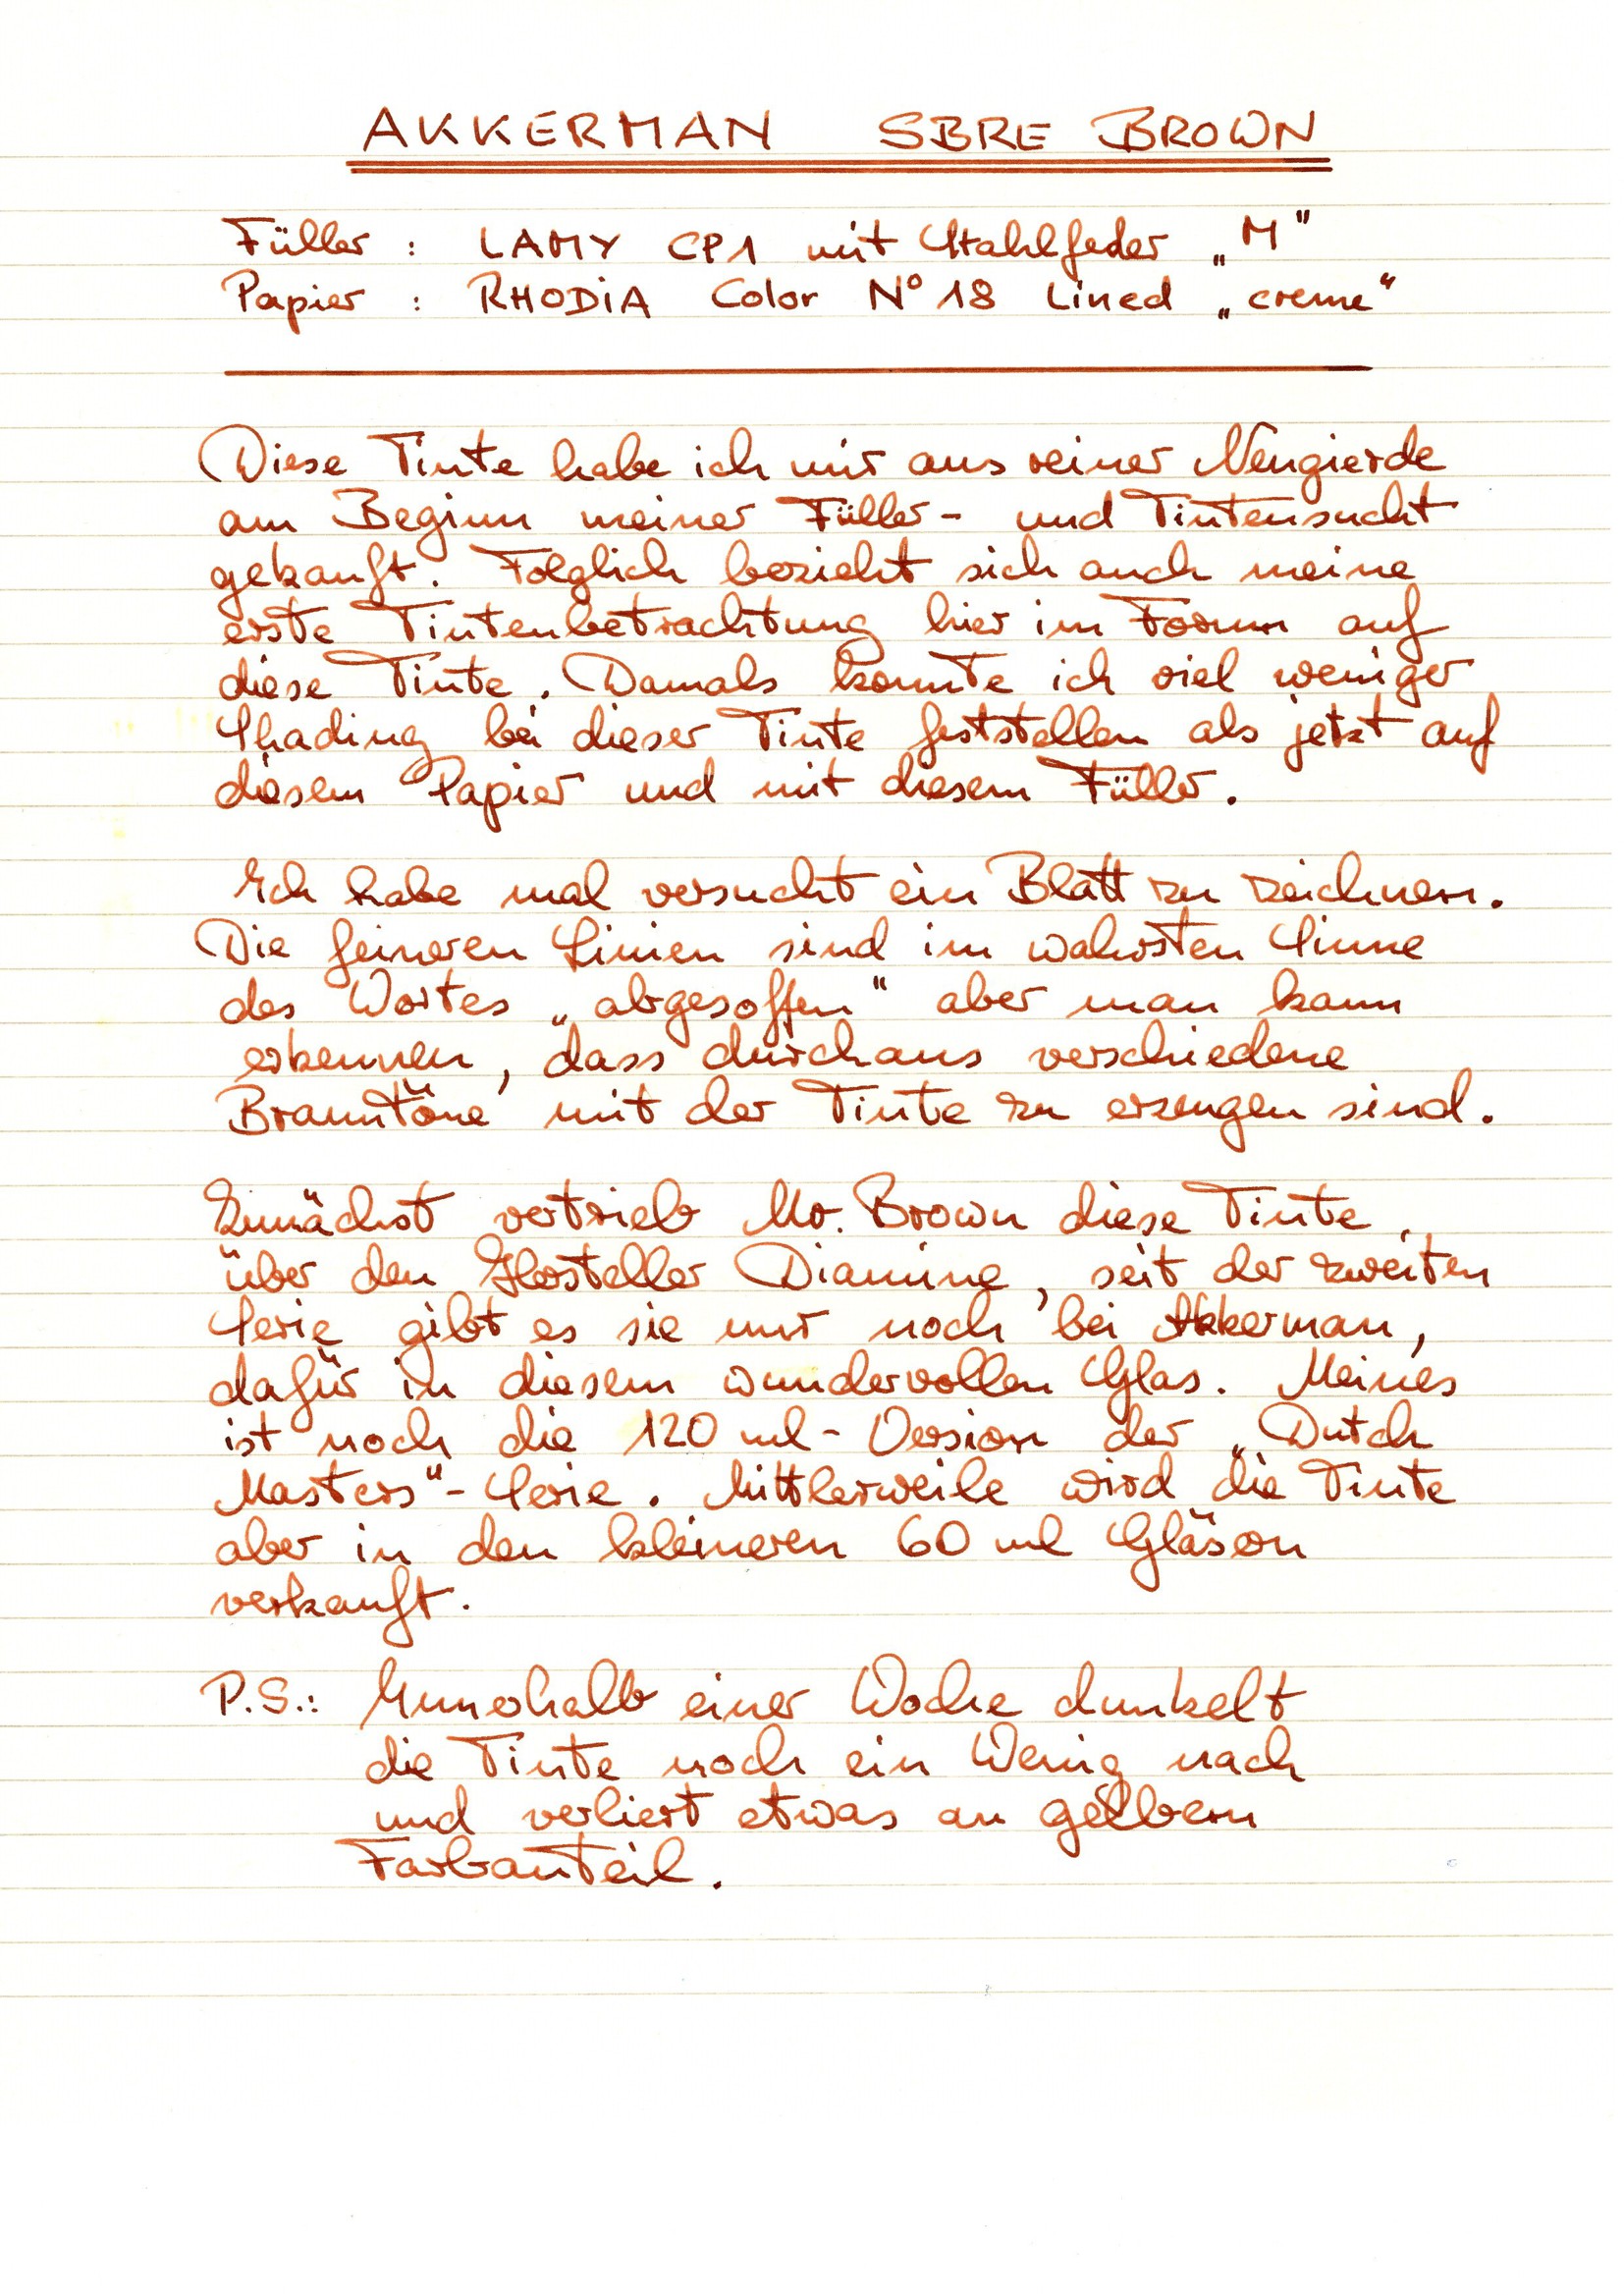 AKKERMAN SBRE BROWN
Füller : LAMY CP1 mit Stahlfeder „M“
Papier : RHODiA Color N° 18 Lined „creme“
Diese Tinte habe ich mir aus reiner Neugierde
am Beginn meiner Füller- und Tintensucht
gekauft. Folglich bezieht sich auch meine
erste Tintenbetrachtung hier im Forum auf
diese Tinte. Damals konnte ich viel weniger
Shading bei dieser Tinte feststellen als jetzt auf
diesem Papier und mit diesem Füller.
Ich habe mal versucht ein Blatt zu zeichnen.
Die feineren Linien sind im wahrsten Sinne
des Wortes „abgesoffen“ aber man kann
erkennen, dass durchaus verschiedene
Brauntöne mit der Tinte zu erzeugen sind.
Zunächst vertrieb Mr. Brown diese Tinte
über den Hersteller Diamine, seit der zweiten
Serie gibt es sie nur noch bei Akkerman,
dafür in diesem wundervollen Glas. Meines
ist noch die 120 ml- Version der „Dutch
Masters“- Serie. Mittlerweile wird die Tinte
aber in den kleineren 60 ml Gläsern
verkauft.
P.S.: Innerhalb einer Woche dunkelt
die Tinte noch ein Wenig nach
und verliert etwas an gelbem
Farbanteil.